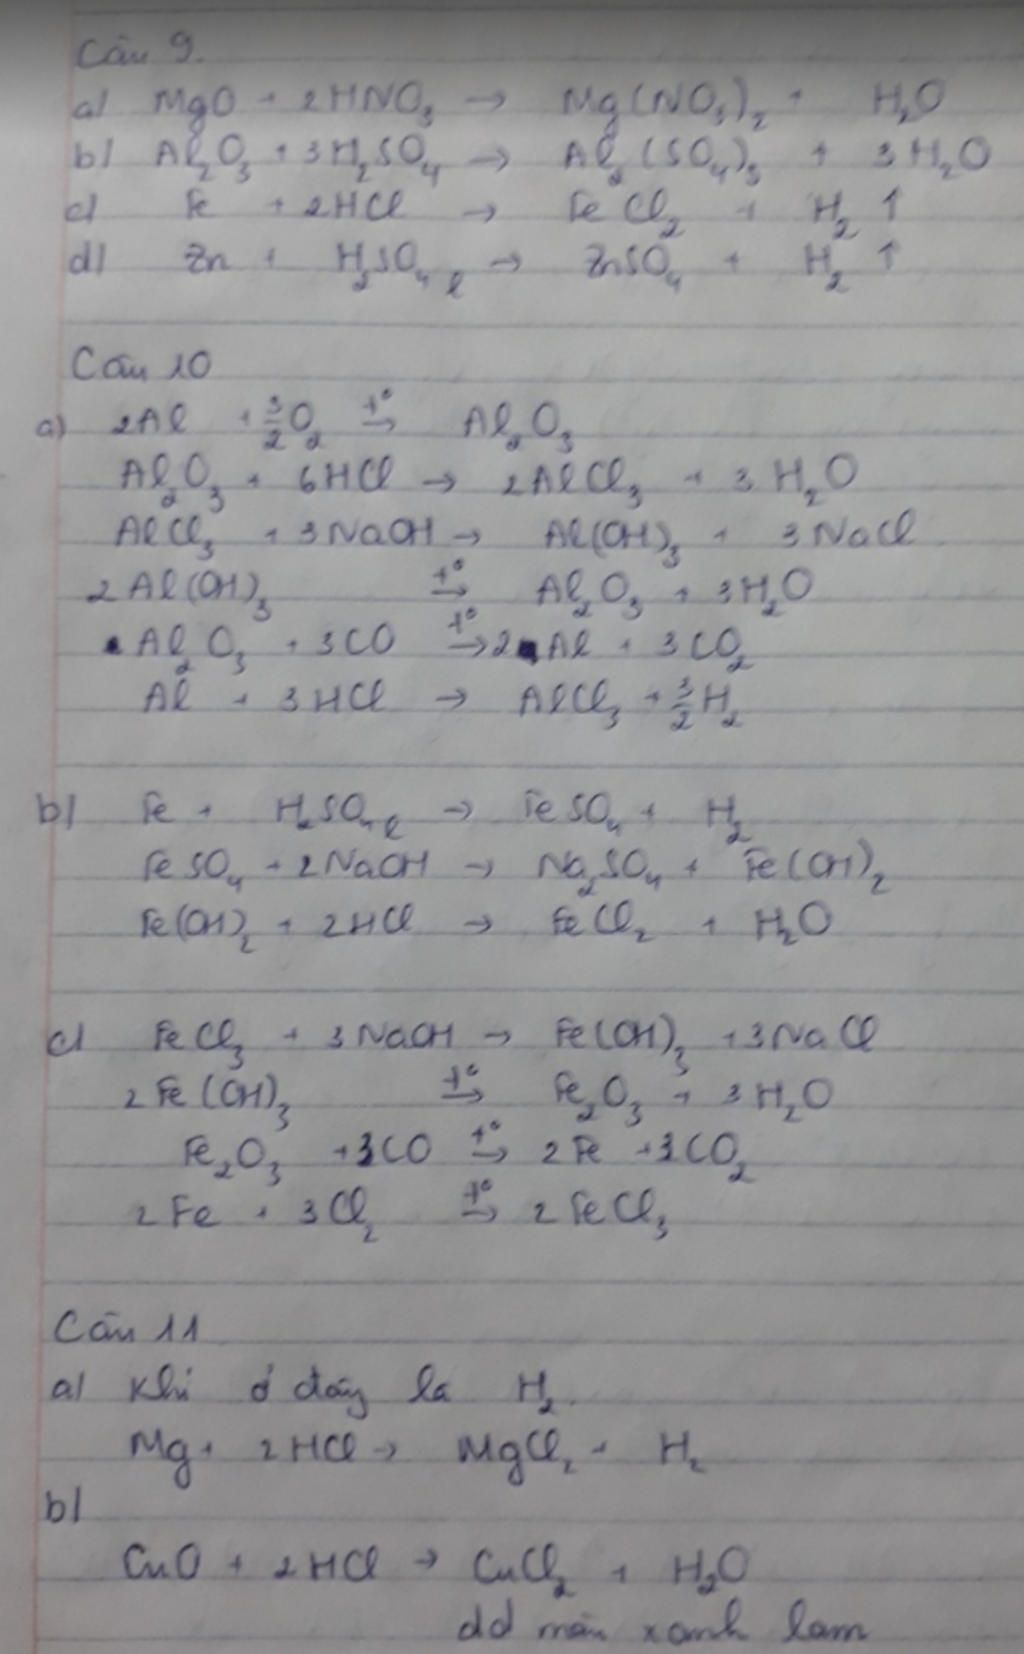 Câu 9.
a) MgO + 2HNO₃ → Mg(NO₃)₂ + H₂O
b) Al₂O₃ + 3H₂SO₄ → Al₂(SO₄)₃ + 3H₂O
c) Fe + 2HCl → FeCl₂ + H₂ ↑
d) Zn + H₂SO₄ l → ZnSO₄ + H₂ ↑
Câu 10
a) 2Al + 3/2 O₂ t°→ Al₂O₃
Al₂O₃ + 6HCl → 2AlCl₃ + 3H₂O
AlCl₃ + 3NaOH → Al(OH)₃ + 3NaCl
2Al(OH)₃ t°→ Al₂O₃ + 3H₂O
Al₂O₃ + 3CO t°→ 2Al + 3CO₂
Al + 3HCl → AlCl₃ + 3/2 H₂
b) Fe + H₂SO₄ l → FeSO₄ + H₂
FeSO₄ + 2NaOH → Na₂SO₄ + Fe(OH)₂
Fe(OH)₂ + 2HCl → FeCl₂ + H₂O
c) FeCl₃ + 3NaOH → Fe(OH)₃ + 3NaCl
2Fe(OH)₃ t°→ Fe₂O₃ + 3H₂O
Fe₂O₃ + 3CO t°→ 2Fe + 3CO₂
2Fe + 3Cl₂ t°→ 2FeCl₃
Câu 11
a) Khí ở đây là H₂.
Mg + 2HCl → MgCl₂ + H₂
b)
CuO + 2HCl → CuCl₂ + H₂O
dd màu xanh lam